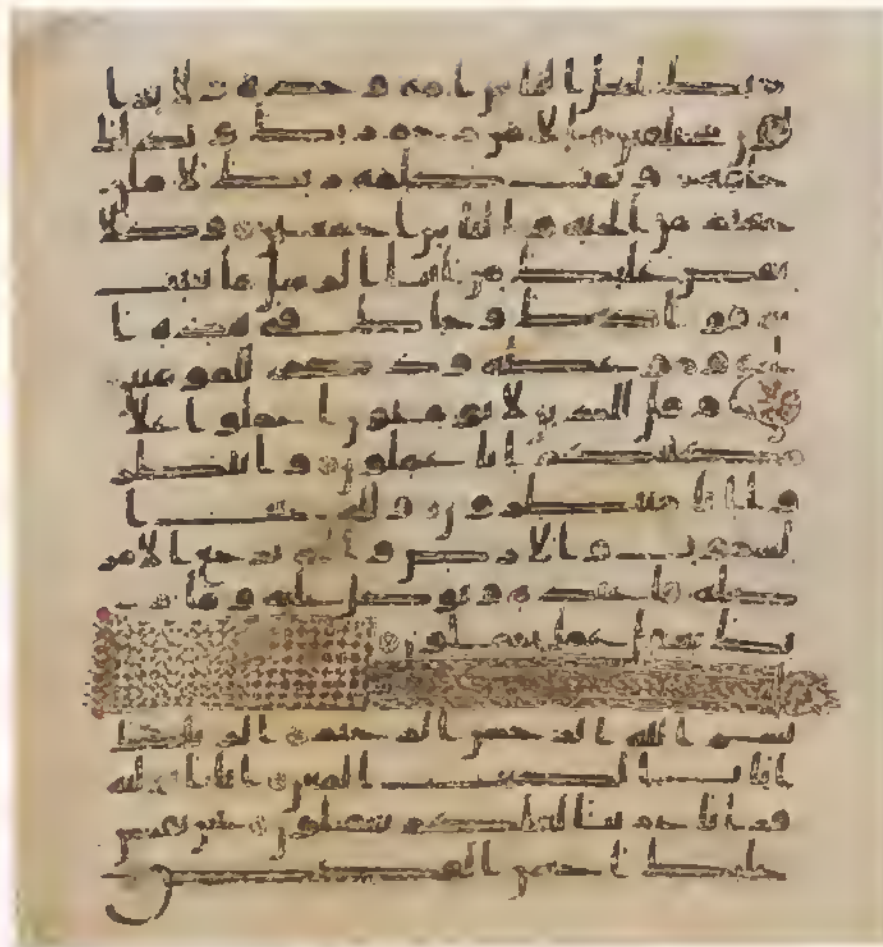 ربك لجعل الناس امة وحدة ولا يزا
لون مختلفين الا من رحم ربك ولذلك
خلقهم وتمت كلمة ربك لاملان
جهنم من الجنة والناس اجمعين وكلا
نقص عليك من انبا الرسل ما نثبت
به فوادك وجاك في هذه ا
لحق وموعظة وذكرى للمومنين
وقل للذين لا يومنون اعملوا على
مكانتكم انا عملون وانتظر
وا انا منتظرون ولله غيب ا
لسموت والارض واليه يرجع الامر
كله فاعبده وتوكل عليه وما ر
بك بغفل عما تعملون
بسم الله الرحمن الرحيم الر تلك ا
يت الكتب المبين انا انزلنه
قرانا عربيا لعلكم تعقلون نحن نقص
عليك احسن القصص